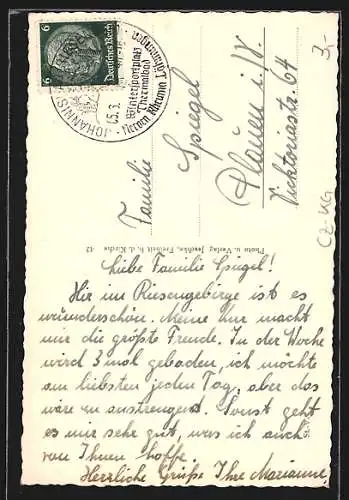 6 Deutsches Reich 6
JOHANNIS
05.3.
Wintersportplatz
Thermalbad
Nerven Rheuma Lähmungen
3,-
CZ-UG
Familie
Spiegel
Plauen i./V.
Vicktoriastr. 64
Photo u. Verlag Jeschke, Freiheit b. d. Kirche 42
Liebe Familie Spiegel!
Hir im Riesengebirge ist es
wunderschön. Meine Kur macht
mir die größte Freude. In der Woche
wird 3 mal gebaden, ich möchte
am liebsten jeden Tag, aber das
wäre zu anstrengend. Sonst geht
es mir sehr gut, was ich auch
von Ihnen hoffe.
Herzliche Grüße Ihre Marianne.